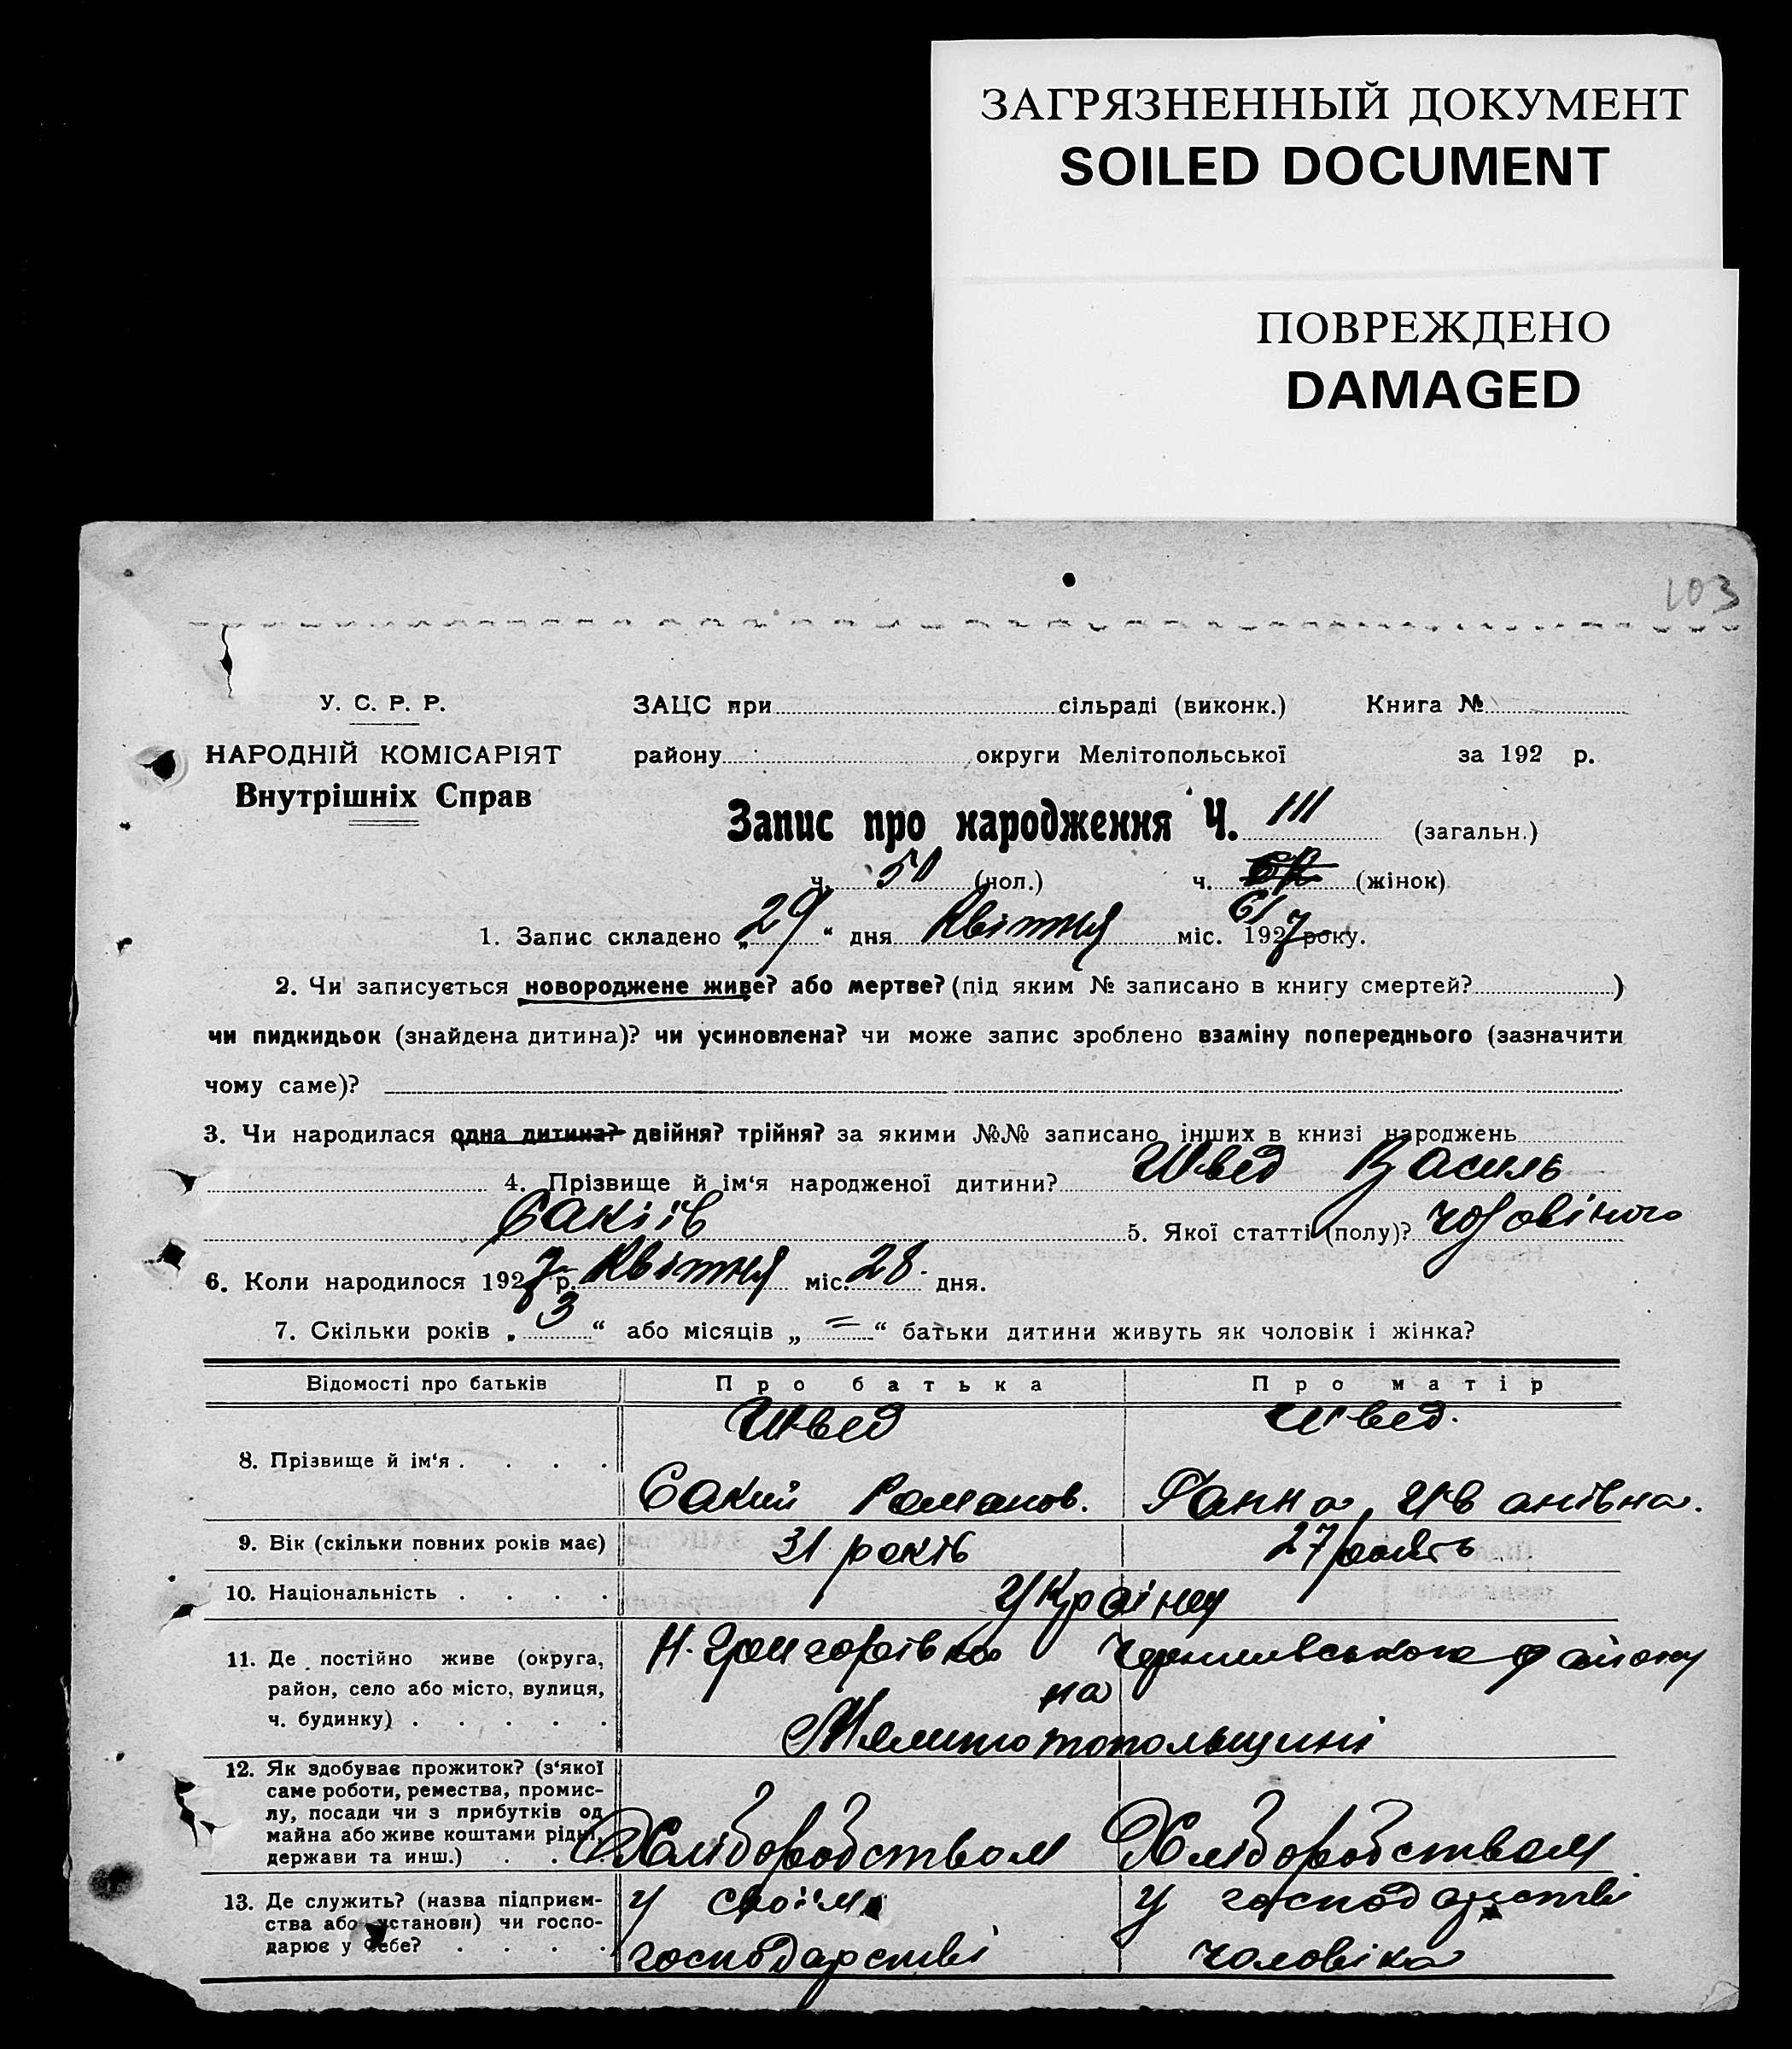 ЗАГРЯЗНЕННЫЙ ДОКУМЕНТ
SOILED DOCUMENT
ПОВРЕЖДЕНО
DAMAGED
103
У. С. Р. Р.
ЗАЦС при сільраді (виконк.) Книга №
НАРОДНІЙ КОМІСАРІЯТ
району округи Мелітопольської за 192 р.
Внутрішніх Справ
Запис про народження Ч. 111 (загальн.)
ч. 50 (чол.) ч. (жінок)
61
1. Запис складено „29“ дня Квітня міс. 1927 року.
2. Чи записується новороджене живе? або мертве? (під яким № записано в книгу смертей? )
чи пидкидьок (знайдена дитина)? чи усиновлена? чи може запис зроблено взаміну попереднього (зазначити
чому саме)?
3. Чи народилася одна дитина? двійня? трійня? за якими №№ записано інших в книзі народжень
4. Прізвище й ім‘я народженої дитини? Швед Василь
Сакіїв 5. Якої статті (полу)? чоловічого
6. Коли народилося 1927 р. Квітня міс. 28 дня.
7. Скільки років „3“ або місяців „=“ батьки дитини живуть як чоловік і жінка?
Відомості про батьків Про батька Про матір
Швед Швед.
8. Прізвище й ім‘я
Сакий Романов. Ганна Иванівна.
9. Вік (скільки повних років має) 31 років 27 років
10. Національність Українці
11. Де постійно живе (округа,
район, село або місто, вулиця,
ч. будинку)
Н-Григорівка Чернигівського району
на
Мелитопольщині
12. Як здобуває прожиток? (з‘якої
саме роботи, ремества, промис-
лу, посади чи з прибутків од
майна або живе коштами рідні,
держави та инш.)
Хліборобством Хліборобством
13. Де служить? (назва підприєм-
ства або установи) чи госпо-
дарює у себе?
у своїм у господарстві
господарстві чоловіка